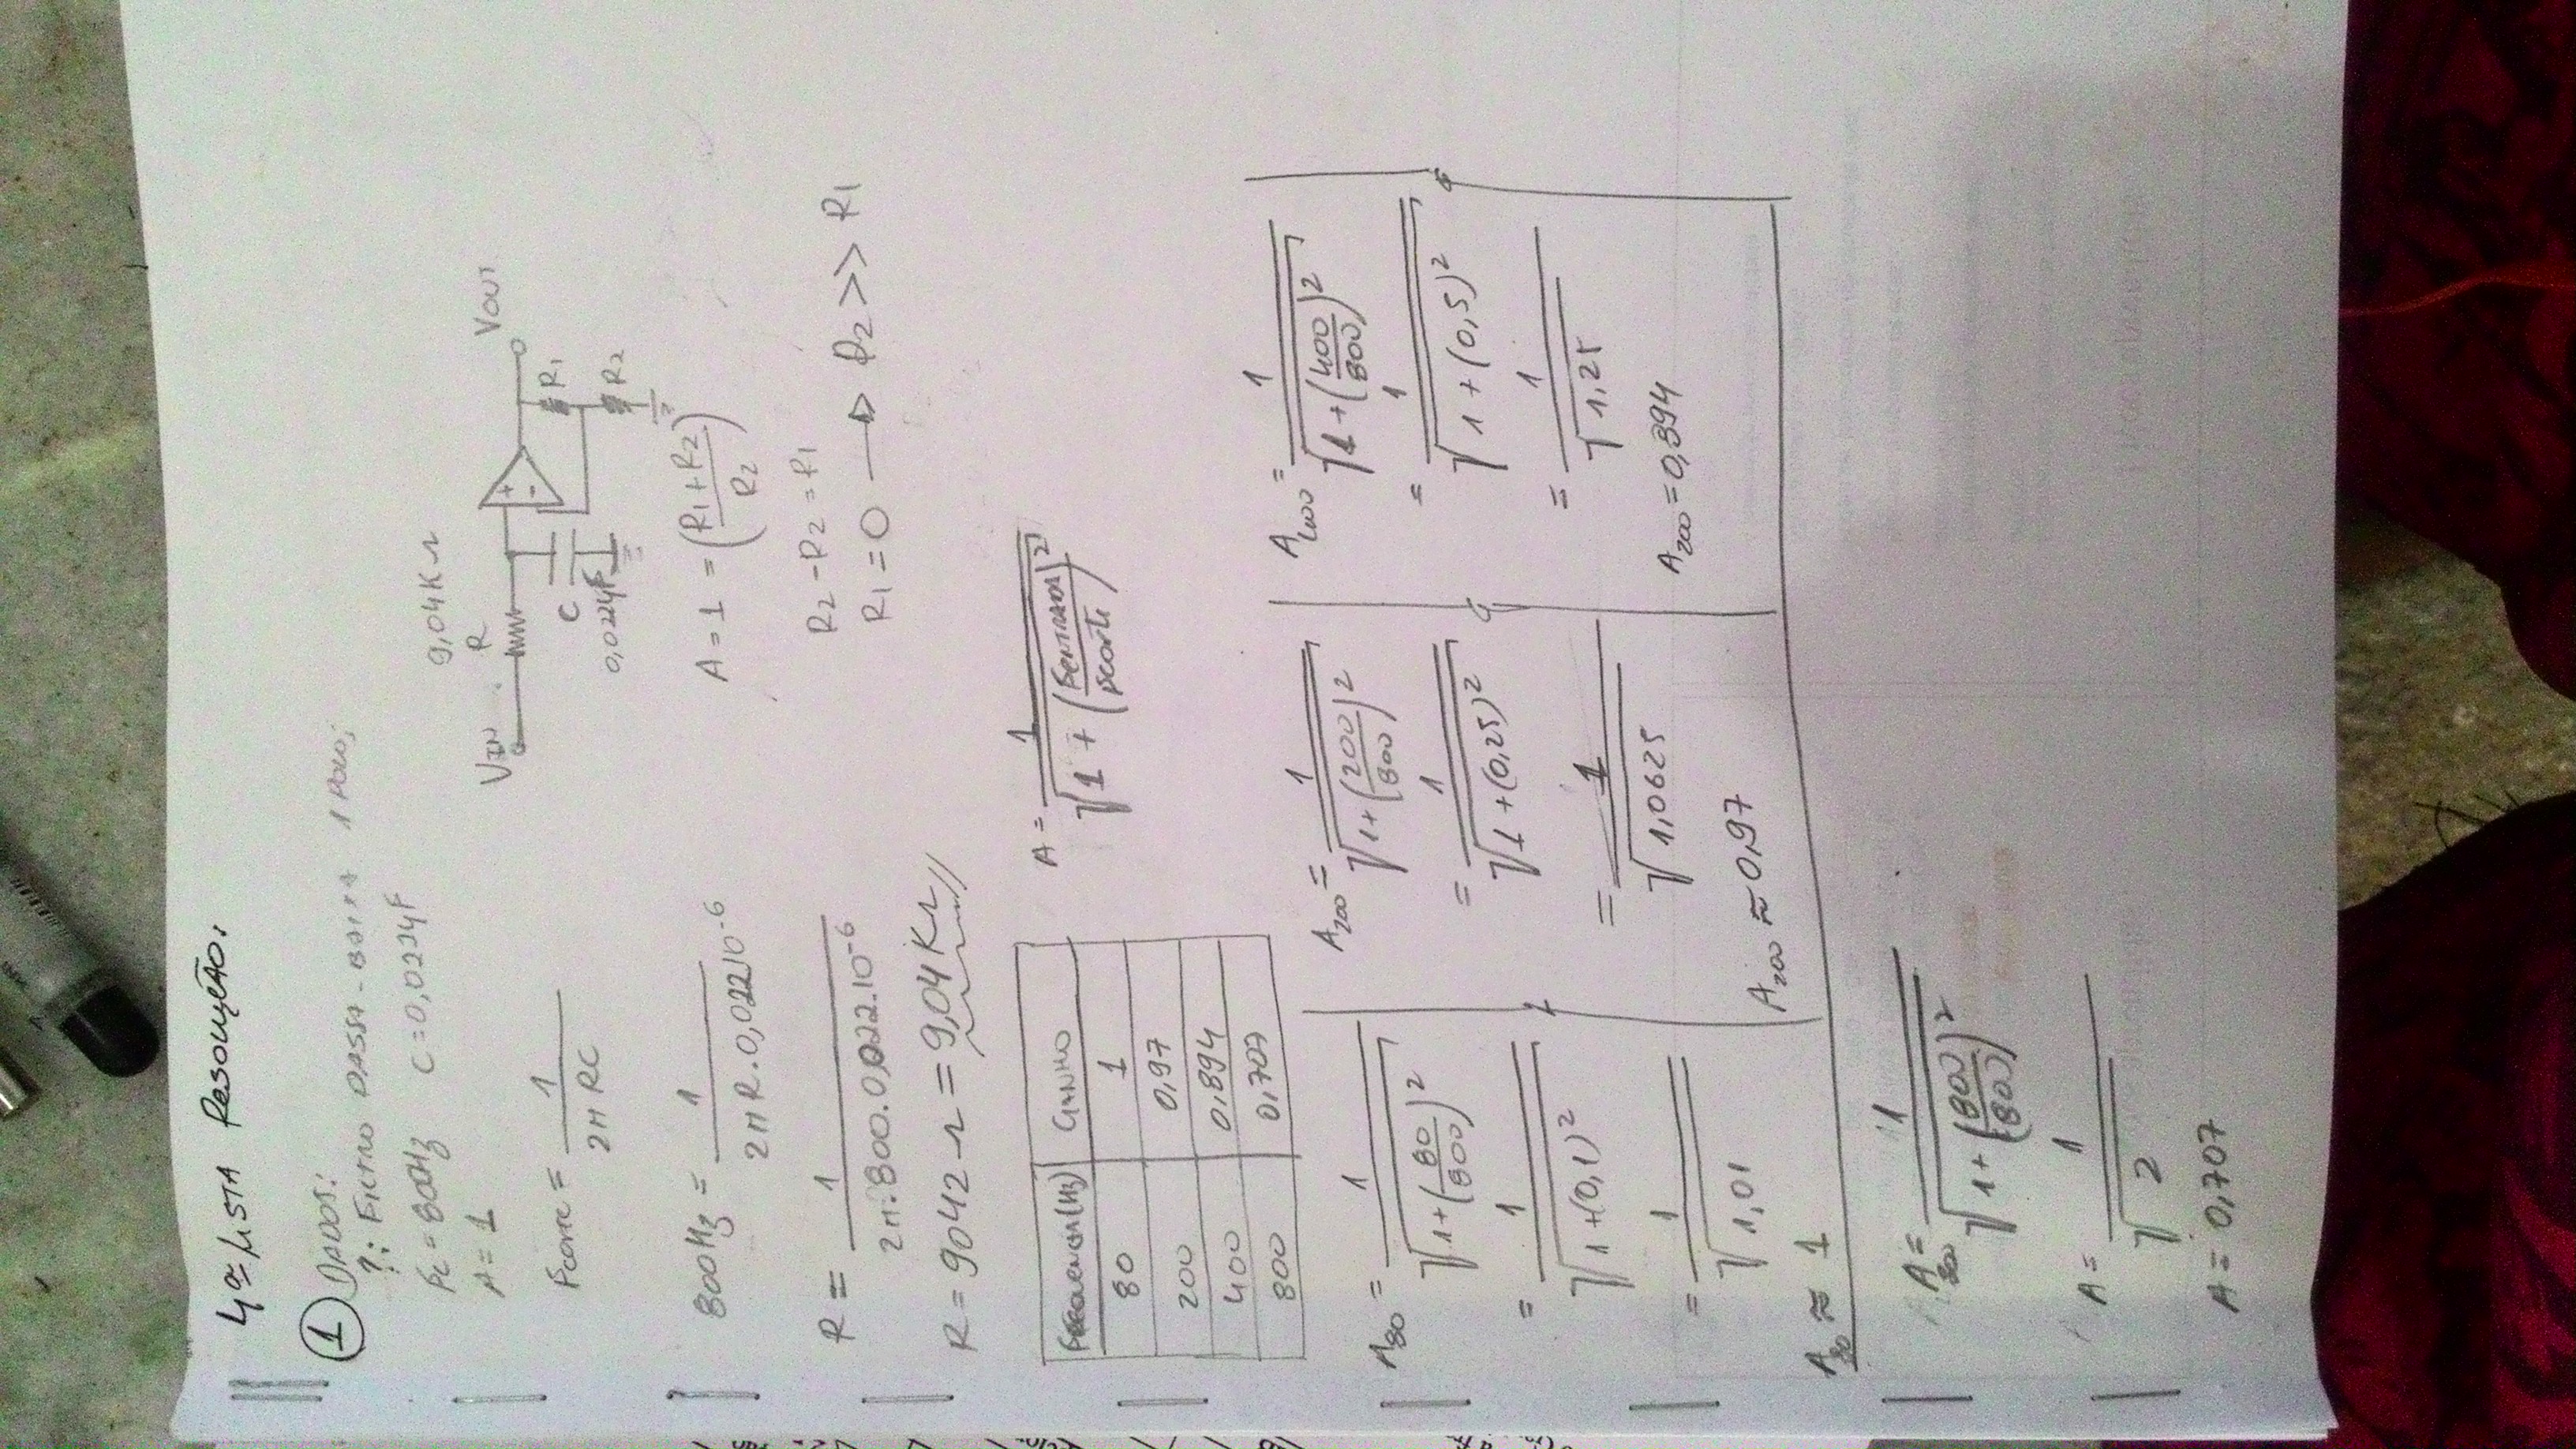 4ª LISTA RESOLUÇÃO:
1 DADOS:
?: FILTRO PASSA-BAIXA 1 POLO;
Fc = 800Hz C = 0,022µF
A = 1
Fcorte = 1 / 2π RC
800Hz = 1 / 2π R . 0,022 10^-6
R = 1 / 2π . 800 . 0,022 . 10^-6
R = 9042 Ω = 9,04 KΩ
9,04KΩ
VIN R + - VOUT
C R1
0,022µF R2
A = 1 = (R1 + R2 / R2)
R2 - R2 = R1
R1 = 0 → R2 >> R1
FREQUENCIA (Hz) GANHO
80 1
200 0,97
400 0,894
800 0,707
A = 1 / √(1 + (FENTRADA / Fcorte)²)
A80 = 1 / √(1 + (80/800)²)
= 1 / √(1 + (0,1)²)
= 1 / √1,01
A80 ≈ 1
A200 = 1 / √(1 + (200/800)²)
= 1 / √(1 + (0,25)²)
= 1 / √1,0625
A200 ≈ 0,97
A400 = 1 / √(1 + (400/800)²)
= 1 / √(1 + (0,5)²)
= 1 / √1,25
A200 = 0,894
A800 = 1 / √(1 + (800/800)²)
A = 1 / √2
A = 0,707